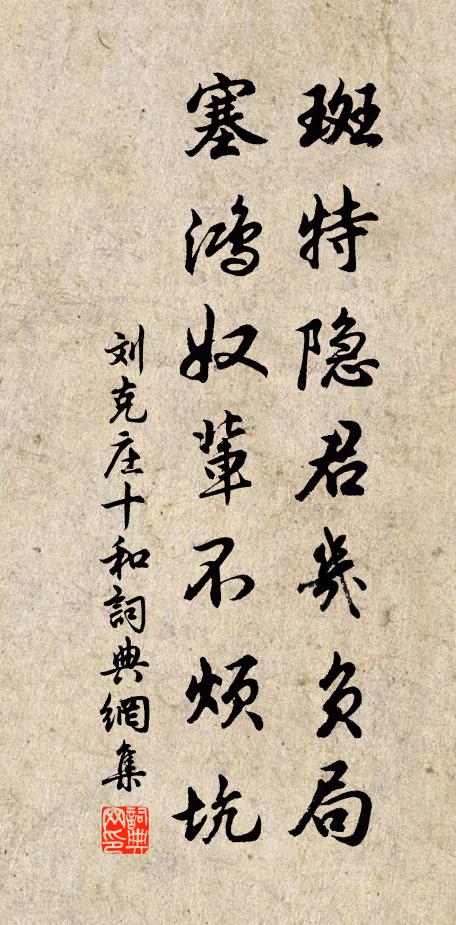 斑特隐君幾负局
塞鸿奴輩不烦坑
刘克庄十和詞典網集
詞典
网印